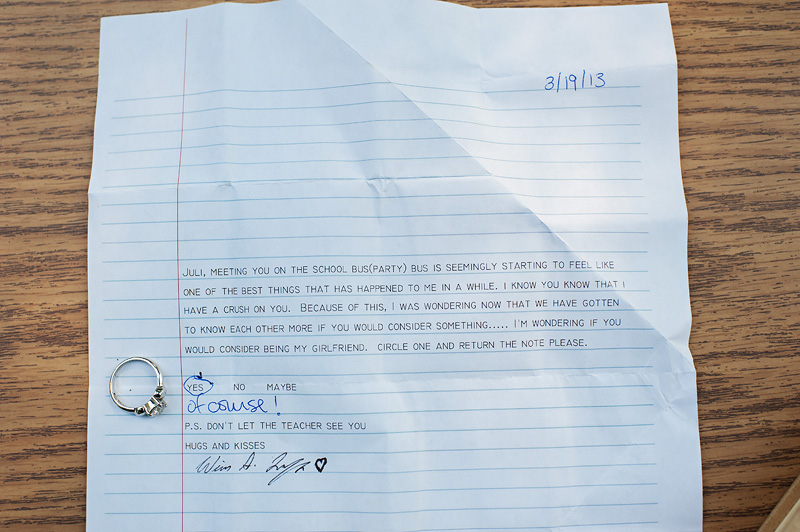 3/19/13
JULI, MEETING YOU ON THE SCHOOL BUS(PARTY) BUS IS SEEMINGLY STARTING TO FEEL LIKE
ONE OF THE BEST THINGS THAT HAS HAPPENED TO ME IN A WHILE. I KNOW YOU KNOW THAT I
HAVE A CRUSH ON YOU. BECAUSE OF THIS, I WAS WONDERING NOW THAT WE HAVE GOTTEN
TO KNOW EACH OTHER MORE IF YOU WOULD CONSIDER SOMETHING..... I'M WONDERING IF YOU
WOULD CONSIDER BEING MY GIRLFRIEND. CIRCLE ONE AND RETURN THE NOTE PLEASE.
YES NO MAYBE
of course!
P.S. DON'T LET THE TEACHER SEE YOU
HUGS AND KISSES
A.